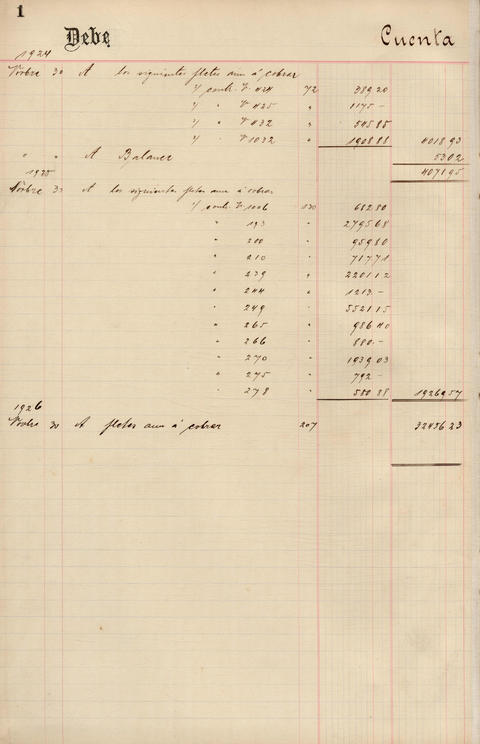 1
Debe Cuenta
1924
Novbre 30 A los siguientes fletes aun á cobrar
s/ contr. V. 424 72 389.20
s/ " V. 425 " 1175.-
s/ " V. 432 " 545.85
s/ " V. 1032 " 1908.88 4018.93
" " A Balance 53.02
4071.95
1925
Novbre 30 A los siguientes fletes aun á cobrar
s/ contr. V. 1006 682.80
" 193 " 2795.68
" 200 " 959.80
" 210 " 717.71
" 239 " 2201.12
" 244 " 1213.-
" 249 " 5521.15
" 265 " 986.40
" 266 " 880.-
" 270 " 1939.03
" 275 " 792.-
" 278 " 580.88 19269.57
1926
Novbre 30 A fletes aun á cobrar 207 32436.23